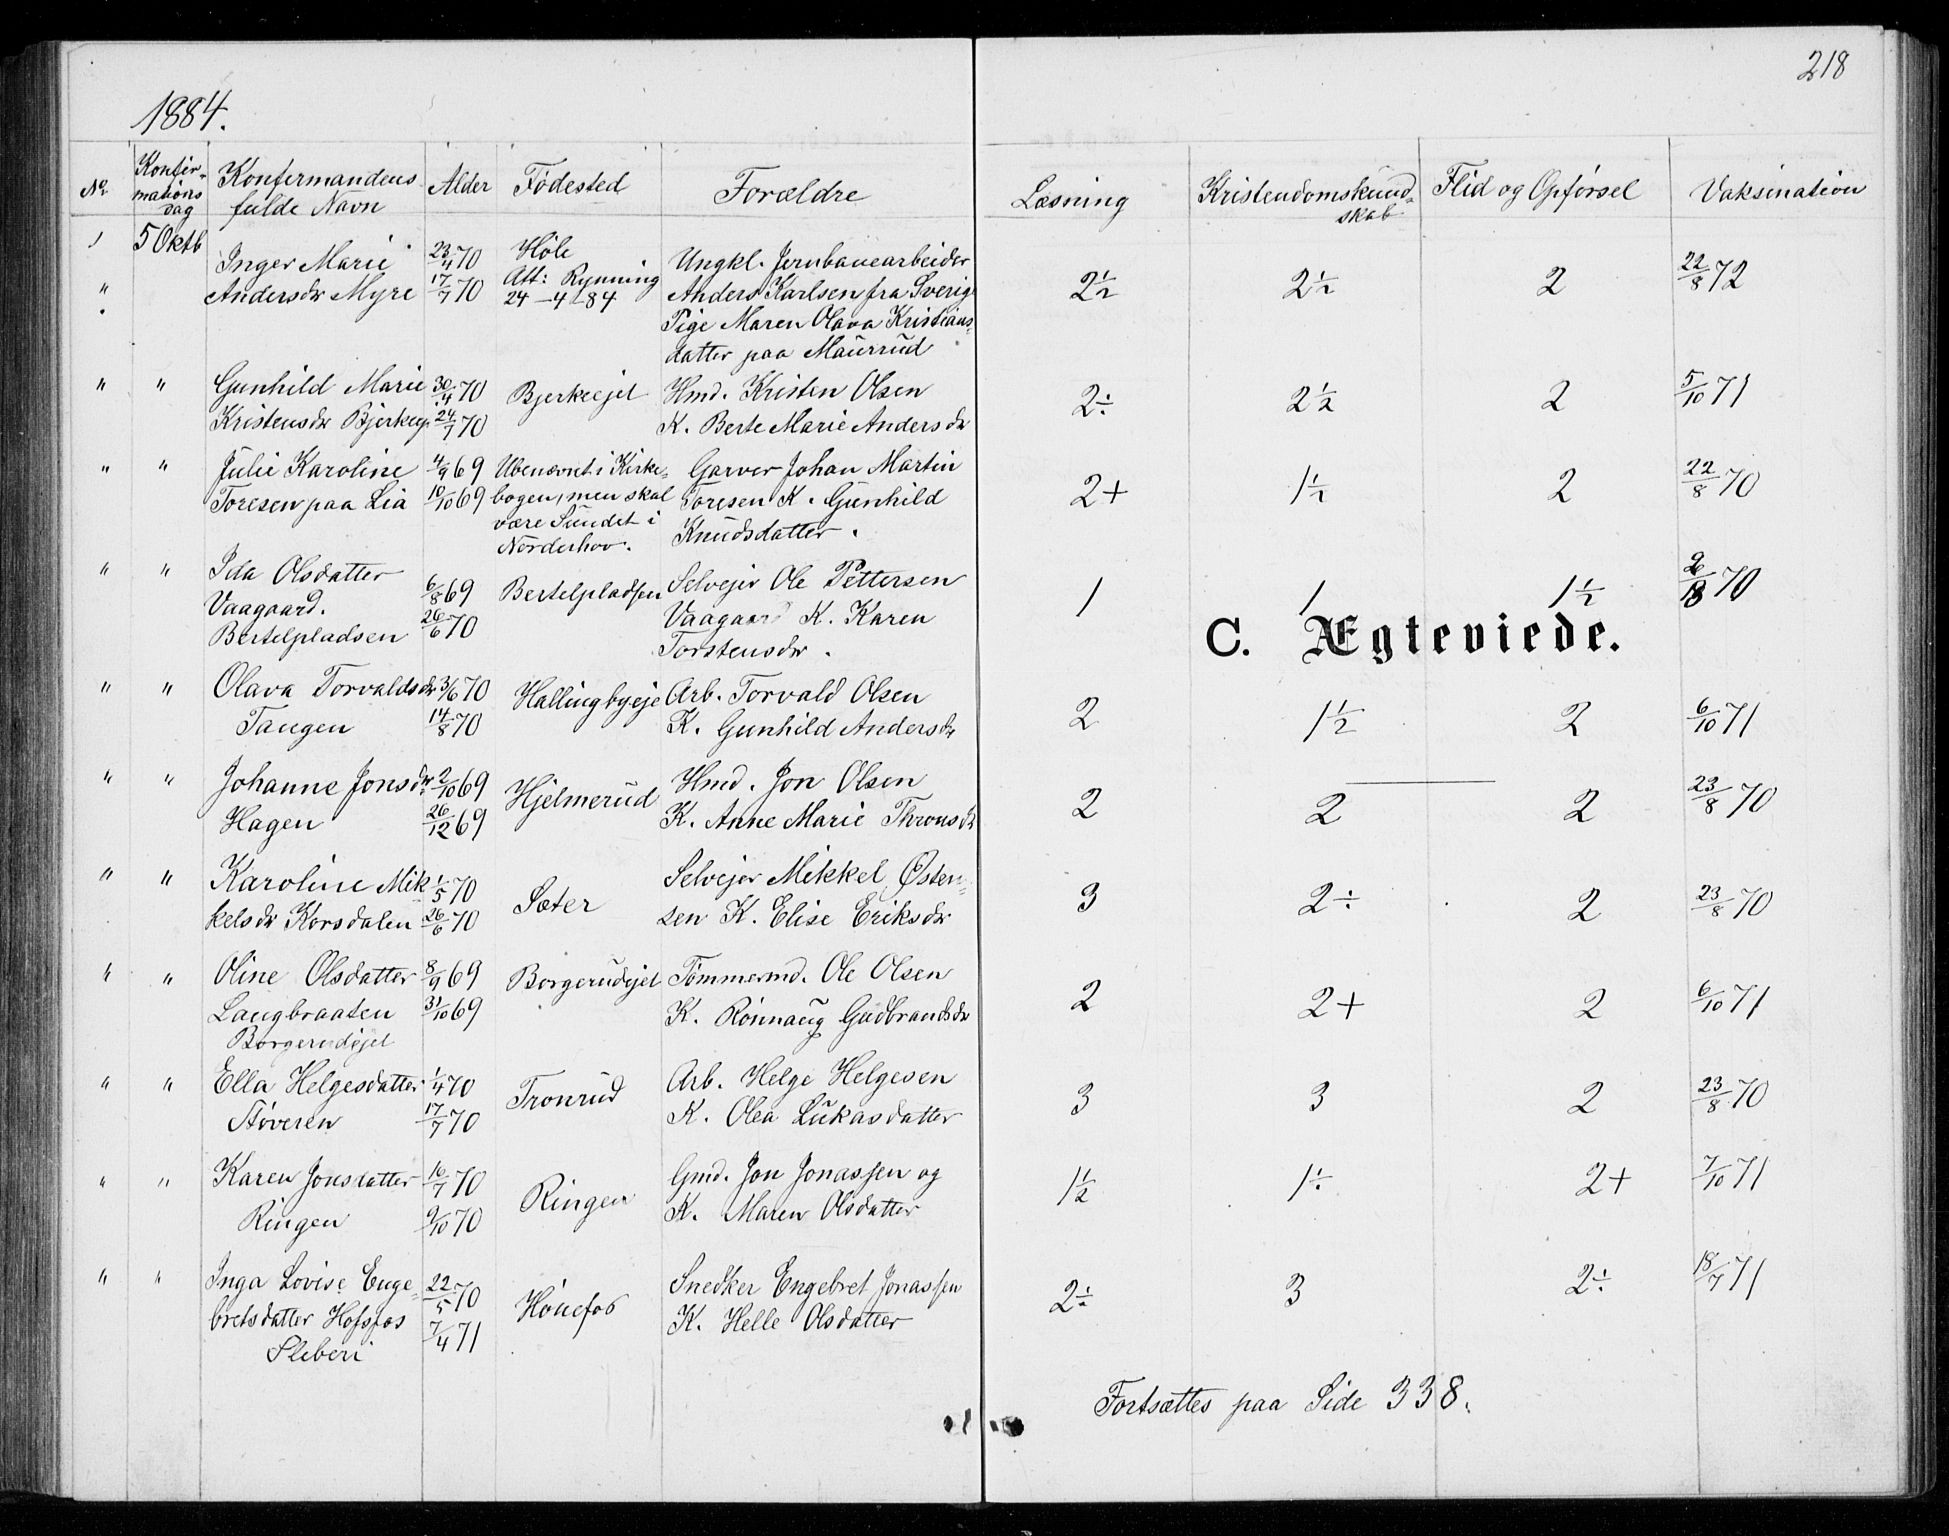 218
1884.
No Konfir- Konfermandens Alder Fødested Forældre Læsning Kristendomskund- Flid og Opførsel Vaksination
mations fulde Navn skab
dag
1 5 Oktb Inger Marie 23/4 70 Høle Ungkl. Jernbanearbeider 2½ 2½ 2 22/8 72
" Andersdr Myre 17/7 70 Att: Rynning Anders Karlsen fra Sverig
24-4-84 Pige Maren Olava Kristians-
datter paa Maurrud
" " Gunhild Marie 30/4 70 Bjerkeejet Hmd. Kristen Olsen 2÷ 2½ 2 5/10 71
Kristensdr Bjerkeej. 24/7 70 K. Berte Marie Andersdr
" " Julie Karoline 4/9 69 Ubenævnt i Kirke- Garver Johan Martin 2+ 1½ 2 22/8 70
Toresen paa Lia 10/10 69 bogen, men skal Toresen K. Gunhild
være Sundet i Knudsdatter.
Norderhov.
" " Ida Olsdatter 6/8 69 Bertelpladsen Selvejer Ole Pettersen 1 1 1½ 70
Vaagaard. 26/6 70 Vaagaard K. Karen
Bertelpladsen Torstensdr.
C. Ægteviede.
" " Olava Torvaldsdr 3/6 70 Hallingbyeje Arb. Torvald Olsen 2 1½ 2 6/10 71
Tangen 14/8 70 K. Gunhild Andersdr
" " Johanne Jonsdr. 2/10 69 Hjelmerud Hmd. Jon Olsen 2 2 2 23/8 70
Hagen 26/12 69 K. Anne Marie Thronsdr
" " Karoline Mik 1/5 70 Sæter Selvejer Mikkel Østen- 3 2÷ 2 23/8 70
kelsdr Korsdalen 26/6 70 sen K. Elise Eriksdr
" " Oline Olsdatter 8/9 69 Borgerudejet Tømmermd. Ole Olsen 2 2+ 2 6/10 71
Langbraaten 31/10 69 K. Rønnaug Gudbrandsdr
Borgerudejet
" " Ella Helgesdatter 1/4 70 Tronrud Arb. Helge Helgesen 3 3 2 23/8 70
Støveren 17/7 70 K. Olea Lukasdatter
" " Karen Jonsdatter 16/7 70 Ringen Gmd. Jon Jonassen og 1½ 1÷ 2+ 7/10 71
Ringen 9/10 70 K. Maren Olsdatter
" " Inga Lovise Enge- 22/5 70 Hønefos Snedker Engebret Jonassen 2÷ 3 2÷ 18/7 71
bretsdatter Hofsfos 7/4 71 K. Helle Olsdatter
Sleberi
Fortsættes paa Side 338.